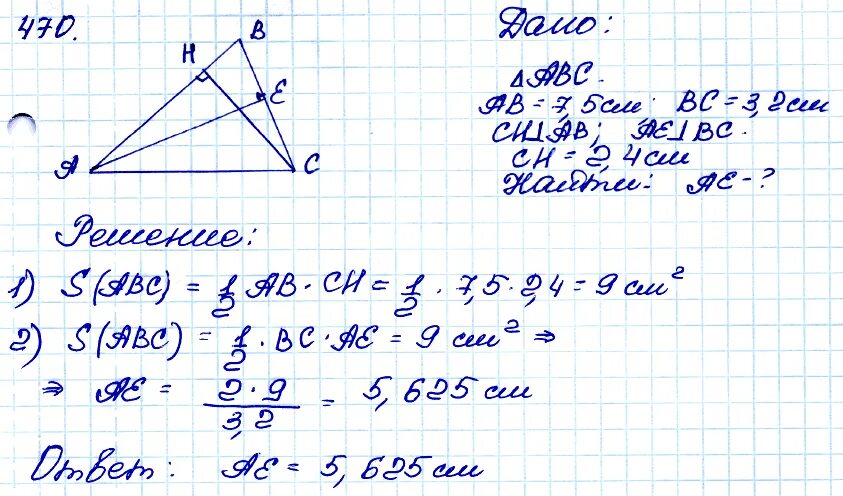 470.
B
H
E
A
C
Дано:
△ABC.
AB = 7,5 см; BC = 3,2 см
CH⊥AB; AE⊥BC.
CH = 2,4 см
Найти: AE - ?
Решение:
1) S(ABC) = 1/2 AB · CH = 1/2 · 7,5 · 2,4 = 9 см²
2) S(ABC) = 1/2 · BC · AE = 9 см² ⇒
⇒ AE = 2·9/3,2 = 5,625 см
Ответ: AE = 5,625 см